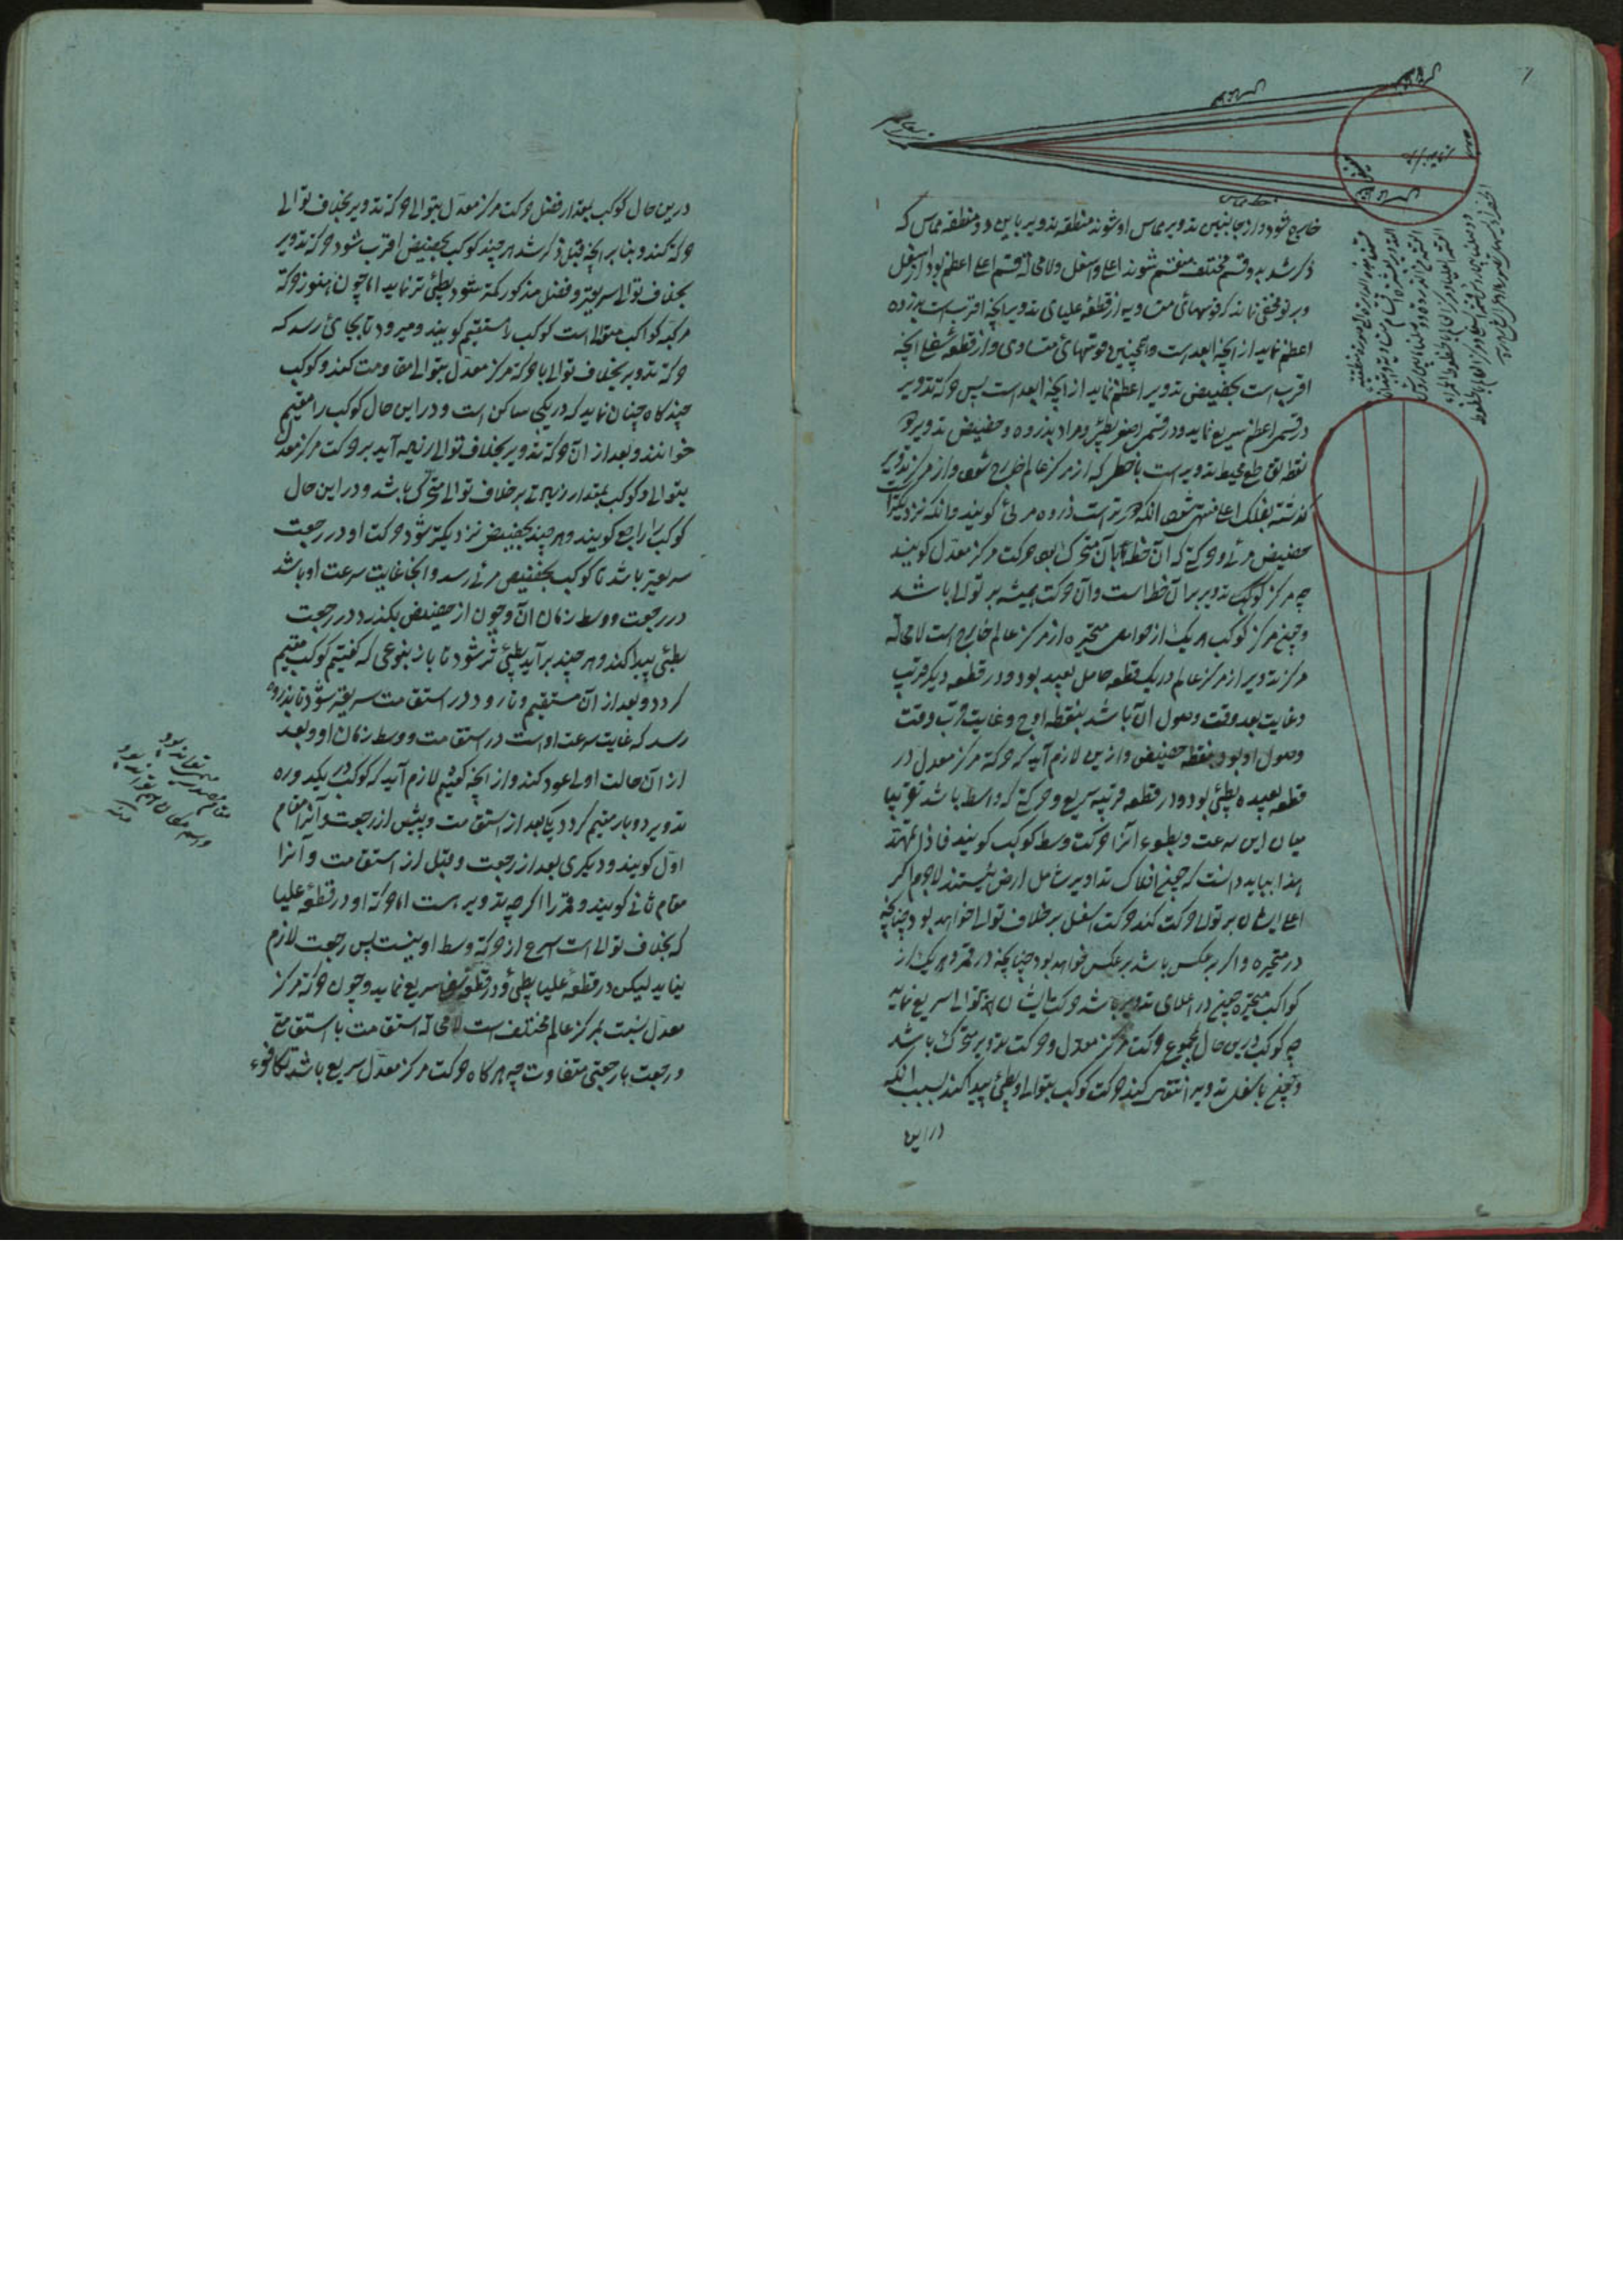 خارج شود و از جانبین تدویر مماس او شوند منطقه تدویر باین دو منطقه مماس که
ذکر شد بدو قسم مختلف منقسم شوند اعلی و اسفل و لامحاله قسم اعلی اعظم بود از اسفل
و بر تو مخفی نماند که قوسهای متساویه از قطعهٔ علیای تدویر آنچه اقرب است بذروه
اعظم نماید از آنچه ابعد است و همچنین قوسهای متساوی از قطعه سفلی آنچه
اقرب است بحضیض تدویر اعظم نماید از آنچه ابعد است پس حرکة تدویر
در قسم اعظم سریع نماید و در قسم اصغر بطیٔ و مراد بذروه و حضیض تدویر دو
نقطه تقاطع محیط تدویر است با خطی که از مرکز عالم خارج شود و از مرکز تدویر
گذشته بفلک اعلی منتهی شود آنکه دورتر است ذروه مرئی گویند و آنکه نزدیکتر
حضیض مرئی و حرکتی که آن خط بآن متحرک بود حرکت مرکز معدل گویند
چه مرکز تدویر بر آن خط است و آن حرکت همیشه بر توالی باشد
و چون مرکز هر یک از حوامل متحیره از مرکز عالم خارج است لامحاله
مرکز تدویر از مرکز عالم در یک قطعه حامل بعید بود و در قطعه دیگر قریب
و غایت بعد وقت وصول آن باشد بنقطه اوج و غایت قرب وقت
وصول او بود بنقطه حضیض و ازین لازم آید که حرکة مرکز معدل در
قطعه بعیده بطیٔ بود و در قطعه قریبه سریع و حرکتی که واسط باشد تقریبا
میان این سرعت و بطوء آنرا حرکت وسط کوکب گویند فاذا تمهد
هذا بباید دانست که چون افلاک تداویر شامل ارض نیستند لاجرم اگر
اعلی ایشان بر توالی حرکت کند حرکت اسفل بر خلاف توالی خواهد بود چنانچه
در متحیره و اگر بر عکس باشد بر عکس خواهد بود چنانچه در قمر و هر یک از
کواکب متحیره چون در اعلای تدویر باشد حرکت ایشان بتوالی سریع نماید
چه کوکب درین حال بمجموع حرکت مرکز معدل و حرکت تدویر متحرک باشد
و چون باسفل تدویر انتقال کند حرکت کوکب بتوالی او بطیٔ پیدا کند بسبب آنکه
درین
درین حال کوکب بمقدار فضل حرکت مرکز معدل بتوالی و حرکة تدویر بخلاف توالی
حرکة کند و بنا بر آنچه قبل ذکر شد هر چند کوکب بحضیض اقرب شود حرکة تدویر
بخلاف توالی سریعتر و فضل مذکور کمتر شود بطیٔ تر نماید اما چون هنوز حرکة
مرکبه کواکب متوالی است کوکب را مستقیم گویند و میرود تا بجائی رسد که
حرکة تدویر بخلاف توالی با حرکة مرکز معدل بتوالی مقاومت کند و کوکب
چندگاه چنان نماید که در یکجا ساکن است و در این حال کوکب را مقیم
خوانند و بعد از آن حرکة تدویر بخلاف توالی زیاده آید بر حرکت مرکز معدل
بتوالی و کوکب بمقدار زیادتی بر خلاف توالی متحرک باشد و در این حال
کوکب را راجع گویند و هر چند بحضیض نزدیکتر شود حرکت او در رجعت
سریعتر باشد تا کوکب بحضیض مرئی رسد و آنجا غایت سرعت او باشد
در رجعت و وسط زمان آن و چون از حضیض بگذرد در رجعت
بطئی پیدا کند و هر چند بر آید بطیٔ تر شود تا باز بنوعی که گفتیم کوکب مقیم
گردد و بعد از آن مستقیم و تا رود در استقامت سریعتر شود تا بذروه
رسد که غایت سرعت اوست در استقامت و وسط زمان او و بعد
از آن حالت اولی عود کند و از آنچه گفتیم لازم آید که کوکب در یکدوره
تدویر دو بار مقیم گردد یکی بعد از استقامت و پیش از رجعت و آنرا مقام
اول گویند و دیگری بعد از رجعت و قبل از استقامت و آنرا
مقام ثانی گویند و قمر را اگرچه تدویر هست اما حرکة او در قطعهٔ علیا
که بخلاف توالی است اسرع از حرکة وسط او نیست پس رجعت لازم
نیاید لیکن در قطعهٔ علیا بطیٔ و در قطعه سفلی سریع نماید و چون حرکة مرکز
معدل نسبت بمرکز عالم مختلف است لامحاله استقامت با استقامتی
و رجعت با رجعتی متفاوت چه هرگاه حرکت مرکز معدل سریع باشد تکافوء